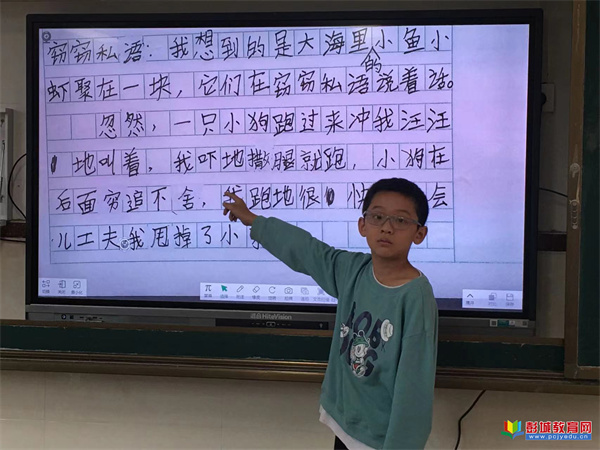 窃窃私语：我想到的是大海里的小鱼小
虾聚在一块，它们在窃窃私语说着话。
忽然，一只小狗跑过来冲我汪汪
地叫着，我吓地撒腿就跑，小狗在
后面穷追不舍，我跑地很快 会
儿工夫我甩掉了小
HiteVision
彭城教育网
www.pcjyedu.cn